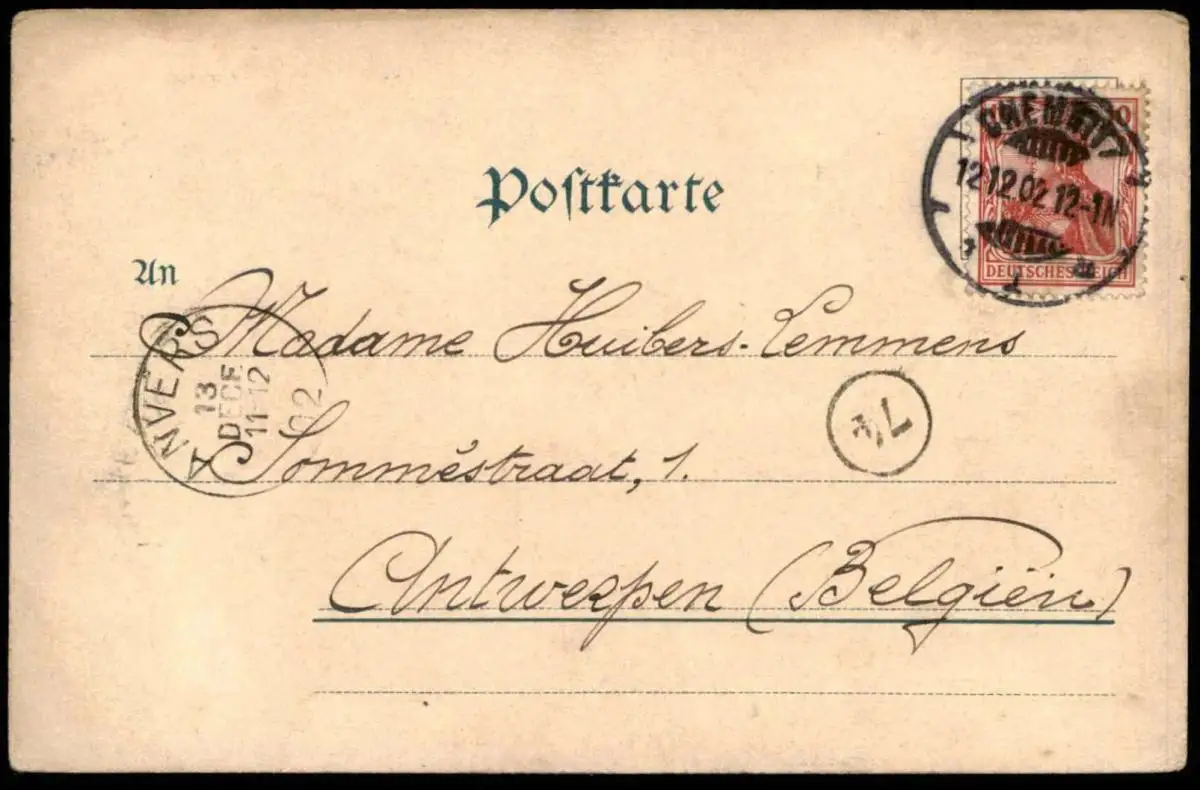 Postkarte
CHEMNITZ
12.12.02.12-1N
DEUTSCHES REICH
An
Madame Huibers-Lemmens
ANVERS
13
DECE
11-12
02
Sommèstraat, 1.
Antwerpen (Belgiën)